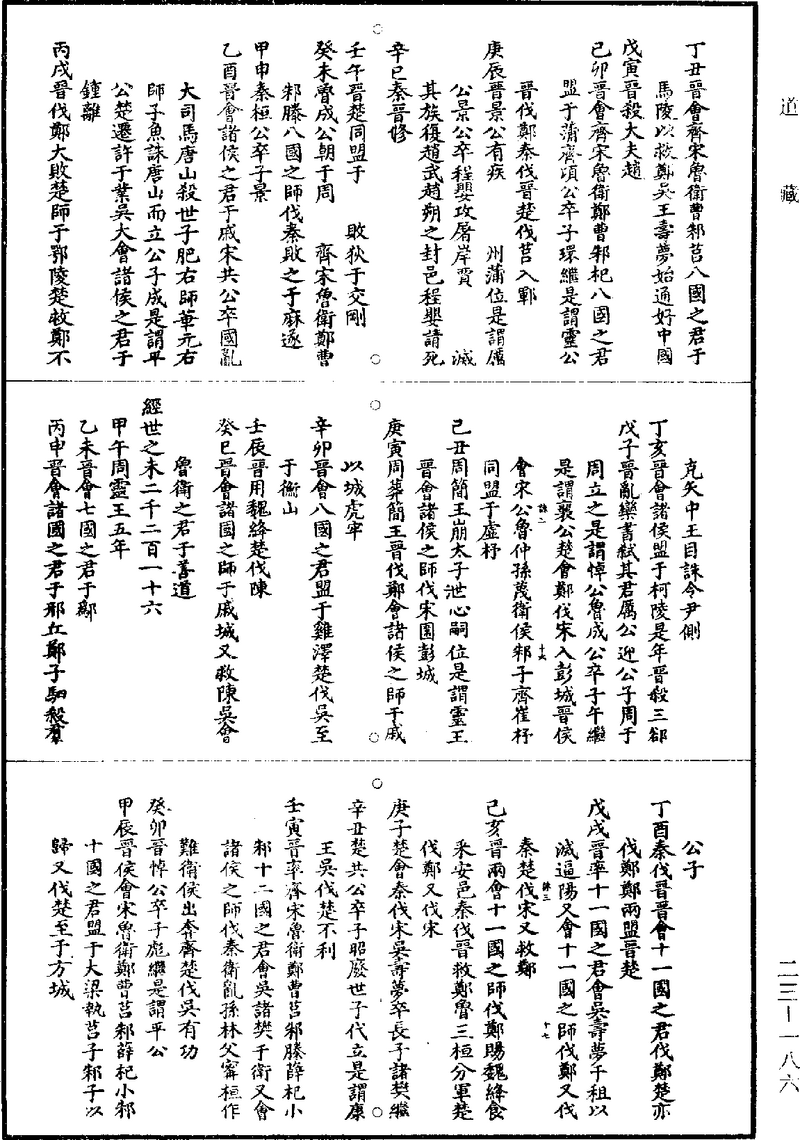 道藏
丁丑晉會齊宋魯衛曹邾莒八國之君于
馬陵以救鄭吳王壽夢始通好中國
戊寅晉殺大夫趙
己卯晉會齊宋魯衛鄭曹邾杞八國之君
盟于蒲齊頃公卒子環繼是謂靈公
晉伐鄭秦伐晉楚伐莒入鄆
庚辰晉景公有疾 州蒲位是謂厲
公景公卒程嬰攻屠岸賈 滅
其族復趙武趙朔之封邑程嬰請死
辛巳秦晉修
壬午晉楚同盟于 敗狄于交剛
癸未魯成公朝于周 齊宋魯衛鄭曹
邾滕八國之師伐秦敗之于麻遂
甲申秦桓公卒子景
乙酉晉會諸侯之君于戚宋共公卒國亂
大司馬唐山殺世子肥右師華元右
師子魚誅唐山而立公子成是謂平
公楚遷許于葉吳大會諸侯之君于
鍾離
丙戌晉伐鄭大敗楚師于鄢陵楚救鄭不
克矢中王目誅令尹側
丁亥晉會諸侯盟于柯陵是年晉殺三郤
戊子晉亂欒書弒其君厲公迎公子周于
周立之是謂悼公魯成公卒子午繼
是謂襄公楚會鄭伐宋入彭城晉侯
會宋公魯仲孫蔑衛侯邾子齊崔杼
同盟于虛朾
己丑周簡王崩太子泄心嗣位是謂靈王
晉會諸侯之師伐宋圍彭城
庚寅周葬簡王晉伐鄭會諸侯之師于戚
以城虎牢
辛卯晉會八國之君盟于雞澤楚伐吳至
于衡山
壬辰晉用魏絳楚伐陳
癸巳晉會諸國之師于戚城又救陳吳會
魯衛之君于善道
經世之未二千二百一十六
甲午周靈王五年
乙未晉會七國之君于鄬
丙申晉會諸國之君于邢丘鄭子駟殺群
公子
丁酉秦伐晉晉會十一國之君伐鄭楚亦
伐鄭鄭兩盟晉楚
戊戌晉率十一國之君會吳壽夢于柤以
滅逼陽又會十一國之師伐鄭又伐
秦楚伐宋又救鄭
己亥晉兩會十一國之師伐鄭賜魏絳食
采安邑秦伐晉救鄭魯三桓分軍楚
伐鄭又伐宋
庚子楚會秦伐宋吳壽夢卒長子諸樊繼
辛丑楚共公卒子昭廢世子代立是謂康
王吳伐楚不利
壬寅晉率齊宋魯衛鄭曹莒邾滕薛杞小
邾十二國之君會吳諸樊于衛又會
諸侯之師伐秦衛亂孫林父甯桓作
難衛侯出奔齊楚伐吳有功
癸卯晉悼公卒子彪繼是謂平公
甲辰晉侯會宋魯衛鄭曹莒邾薛杞小邾
十國之君盟于大梁執莒子邾子以
歸又伐楚至于方城
二三—一八六